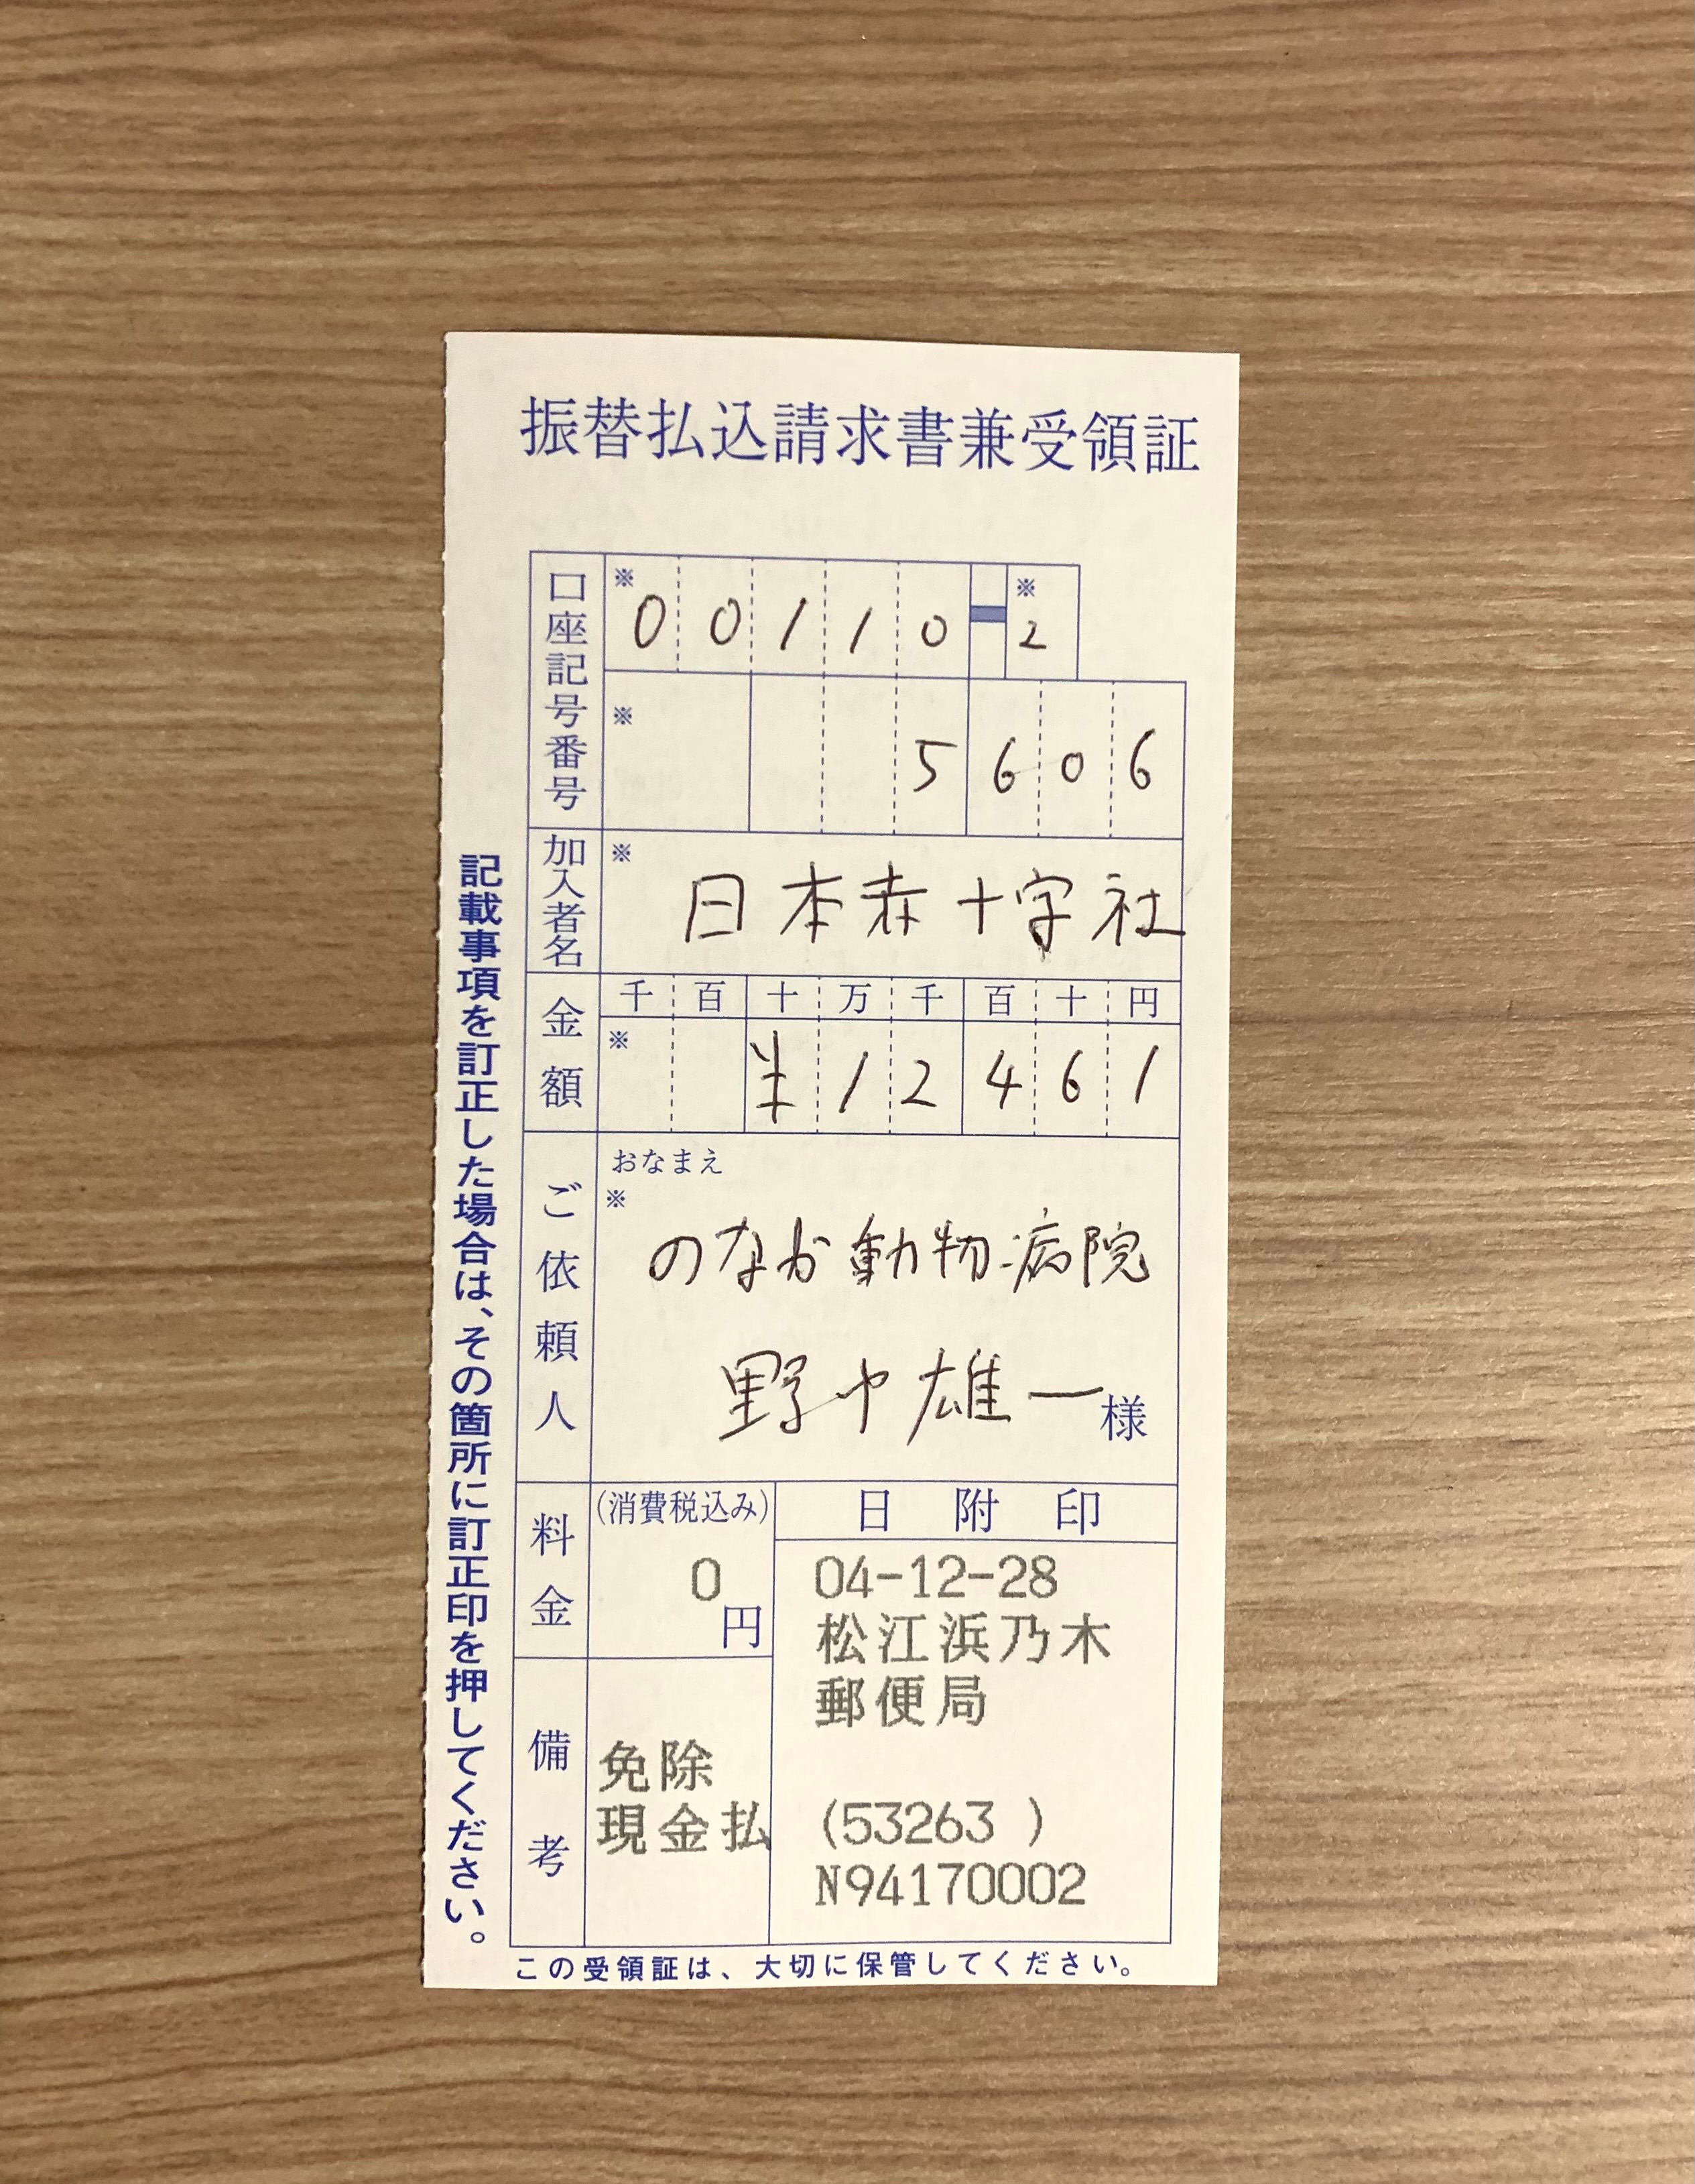 振替払込請求書兼受領証
口座記号番号
※ 00110-※2
※ 5606
加入者名
※ 日本赤十字社
金額
千 百 十 万 千 百 十 円
※ ¥12461
ご依頼人
おなまえ
※
のなか動物病院
野中雄一様
料金
(消費税込み)
0円
日附印
04-12-28
松江浜乃木
郵便局
(53263 )
N94170002
備考
免除
現金払
この受領証は、大切に保管してください。
記載事項を訂正した場合は、その箇所に訂正印を押してください。